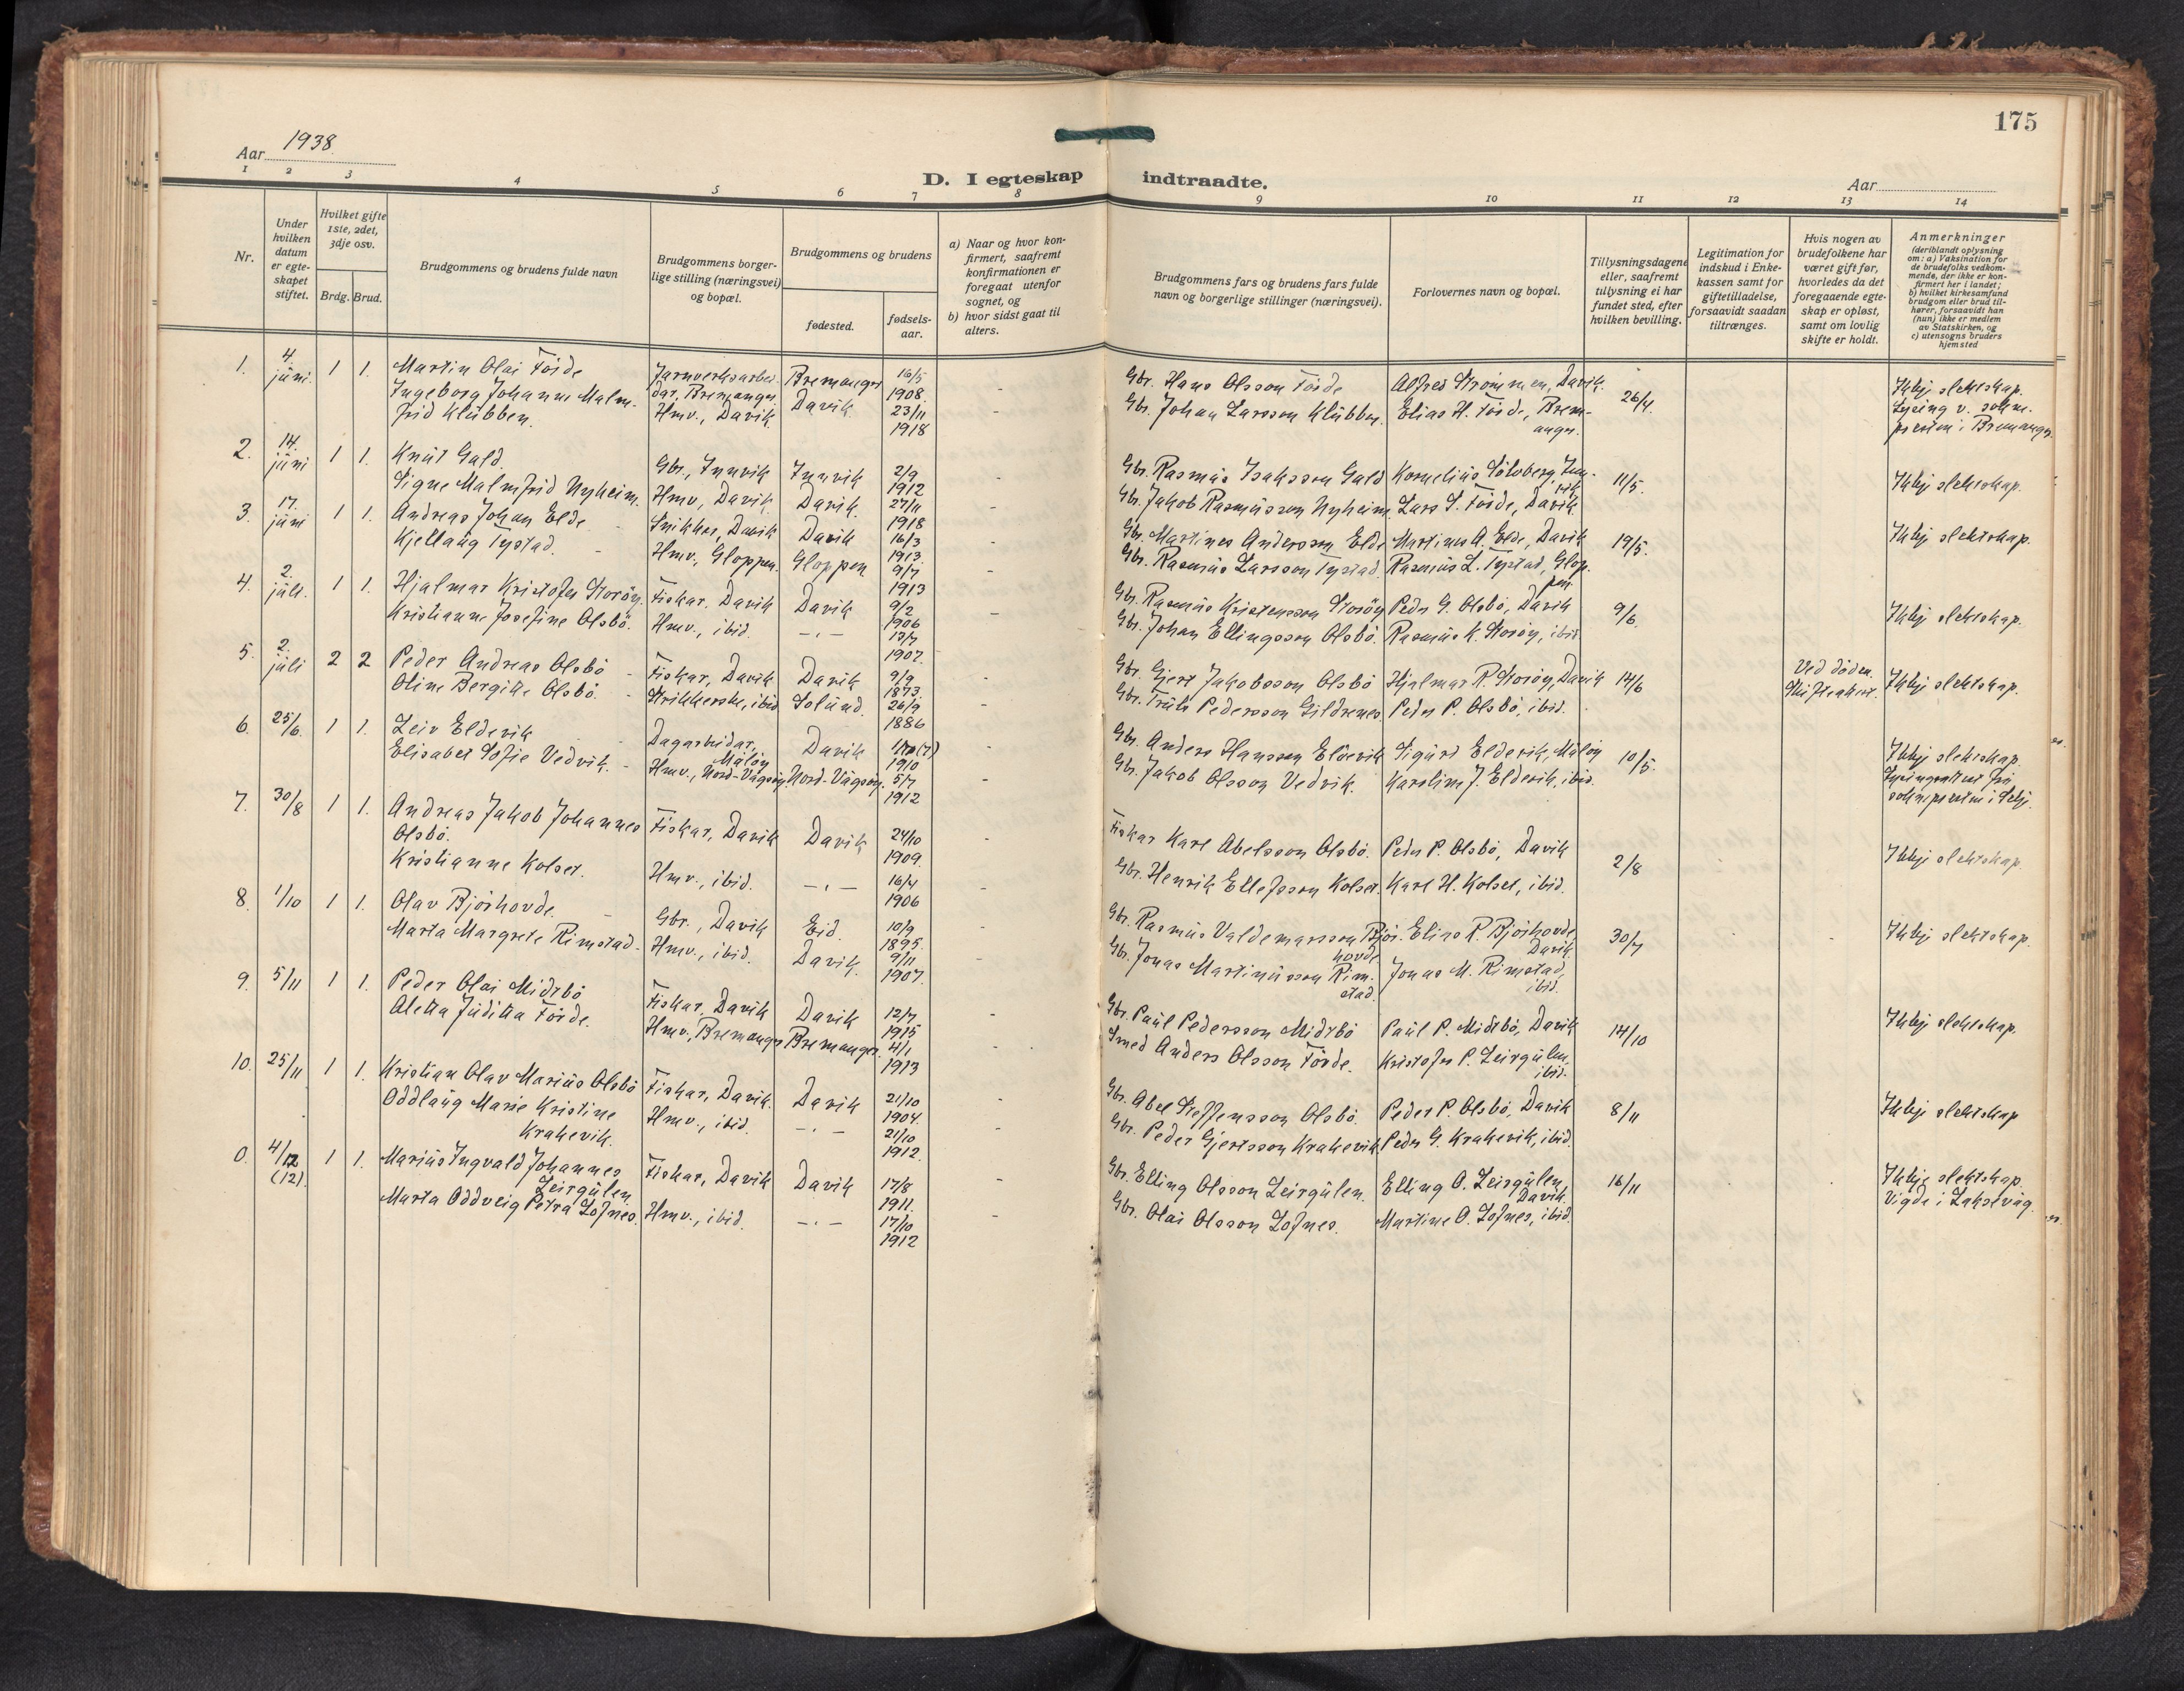 175
Aar 1938.
Aar
D. I egteskap indtraadte.
1 2 3 4 5 6 7 8 9 10 11 12 13 14
Nr.
Under hvilken datum er egte-skapet stiftet.
Hvilket gifte 1ste, 2det, 3dje osv.
Brdg. Brud.
Brudgommens og brudens fulde navn
Brudgommens borger-lige stilling (næringsvei) og bopæl.
Brudgommens og brudens
fødested.
fødsels-aar.
a) Naar og hvor kon-firmert, saafremt konfirmationen er foregaat utenfor sognet, og
b) hvor sidst gaat til alters.
Brudgommens fars og brudens fars fulde navn og borgerlige stillinger (næringsvei).
Forlovernes navn og bopæl.
Tillysningsdagene eller, saafremt tillysning ei har fundet sted, efter hvilken bevilling.
Legitimation for indskud i Enke-kassen samt for giftetilladelse, forsaavidt saadan tiltrænges.
Hvis nogen av brudefolkene har været gift før, hvorledes da det foregaaende egte-skap er opløst, samt om lovlig skifte er holdt.
Anmerkninger (deriblandt oplysning om: a) Vaksination for de brudefolks vedkom-mende, der ikke er kon-firmert her i landet; b) hvilket kirkesamfund brudgom eller brud til-hører, forsaavidt han (hun) ikke er medlem av Statskirken, og c) utensogns bruders hjemsted
1. 4. juni. 1 1. Martin Olai Förde Jarnverksarbei-dar, Bremanger. Bremanger 16/5 1908. - Gbr. Hans Olsson Förde Alfred Strömmen, Davik. 26/4. Ikkje slektskap. Lysing v. sokne-presten i Bremanger.
Ingeborg Johanne Malm-frid Klubben. Hmv., Davik. Davik. 23/11 1918 - Gbr. Johan Larsson Klubben. Elias H. Förde, Brem-anger.
2. 14. juni 1 1. Knut Gald. Gbr., Innvik Innvik 2/9 1912 - Gbr. Rasmus Isaksson Gald Kornelius Sölvberg, Inn-vik 11/5. Ikkje slektskap.
Signe Malmfrid Nyheim. Hmv., Davik. Davik. 27/11 1918 - Gbr. Jakob Rasmusson Nyheim. Lars S. Förde, Davik.
3. 17. juni 1 1. Andreas Johan Elde - Snikkar, Davik Davik 16/3 1913. - Gbr. Martines Andersson Elde Martines A. Elde, Davik 19/5. Ikkje slektskap.
Kjellaug Tystad. - Hmv., Gloppen. Gloppen 9/7 1913 - Gbr. Rasmus Larsson Tystad. Rasmus L. Tystad, Glop-pen
4. 2. juli. 1 1. Hjalmar Kristofer Storöy. Fiskar. Davik Davik 9/2 1906 - Gbr. Rasmus Kristensson Storöy Peder G. Olsbö, Davik 9/6. Ikkje slektskap.
Kristianne Josefine Olsbö. Hmv., ibid. -,- 13/7 1907. Gbr. Johan Ellingsson Olsbö. Rasmus K. Storöy, ibid.
5. 2. juli 2 2 Peder Andreas Olsbö - Fiskar, Davik Davik 9/9 1873 - Gbr. Gjert Jakobsson Olsbö Hjalmar R. Storöy, Davik 14/6 Ved döden. Skifteattest. Ikkje slektskap.
Oline Bergitte Olsbö. - Strikkerske, ibid Solund. 26/9 1886 - Gbr. Truls Pedersson Gildrenes. Peder P. Olsbö, ibid.
6. 25/6. 1 1. Leiv Eldevik - Dagarbeidar, Måløy Davik 1910 - Gbr. Anders Hansson Eldevik Sigurd Eldevik, Måløy 10/5. Ikkje slektskap.
Elisabet Sofie Vedvik. - Hmv., Nord-Vågsøy. Nord-Vågsøy. 5/7 1912 - Gbr. Jakob Olsson Vedvik. Karoline J. Eldevik, ibid. Lysingsattest frå soknepresten i Selje.
7. 30/8 1 1. Andreas Jakob Johannes Olsbö. Fiskar, Davik Davik 24/10 1909. - Fiskar Karl Abelsson Olsbö. Peder P. Olsbö, Davik 2/8 Ikkje slektskap.
Kristianne Kolset. Hmv., ibid. -,- 16/4 1906 - Gbr. Henrik Ellefsson Kolset. Karl H. Kolset, ibid.
8. 1/10 1 1. Olav Bjørhovde. - Gbr., Davik Eid. 10/9 1895. - Gbr. Rasmus Valdemarsson Bjør-hovde Elias R. Bjørhovde, Davik. 30/7 Ikkje slektskap.
Marta Margrete Rimstad. Hmv., ibid. Davik. 9/11 1907. - Gbr. Jonas Martinusson Rim-stad. Jonas M. Rimstad, ibid.
9. 5/11 1 1. Peder Olai Midtbö Fiskar, Davik Davik 12/7 1915 - Gbr. Paul Pedersson Midtbö Paul P. Midtbö, Davik 14/10 Ikkje slektskap.
Aletta Juditta Förde. Hmv., Bremanger Bremanger. 4/1 1913 - Smed Anders Olsson Förde. Kristofer P. Leirgulen, ibid.
10. 25/11 1 1. Kristian Olav Marius Olsbö Fiskar, Davik. Davik 21/10 1904. - Gbr. Abel Steffensson Olsbö. Peder P. Olsbö, Davik 8/11 Ikkje slektskap
Oddlaug Marie Kristine Krakevik. Hmv., ibid. -,- 21/10 1912. - Gbr. Peder Gjertsson Krakevik Peder G. Krakevik, ibid.
0. 4/12 (12). 1 1. Marius Ingvald Johannes Leirgulen Fiskar, Davik Davik 17/8 1911. - Gbr. Elling Olsson Leirgulen. Elling O. Leirgulen, Davik. 16/11 Ikkje slektskap. Vigde i Laksevåg.
Marta Oddveig Petra Lofnes. Hmv., ibid. -,- 17/10 1912 - Gbr. Olai Olsson Lofnes. Martine O. Lofnes, ibid.